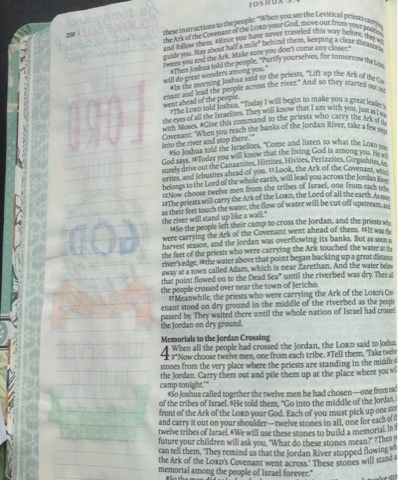 JOSHUA 3:4
260
these instructions to the people: "When you see the Levitical priests carrying
the Ark of the Covenant of the LORD your God, move out from your positions
and follow them. 4Since you have never traveled this way before, they will
guide you. Stay about half a mile* behind them, keeping a clear distance
tween you and the Ark. Make sure you don't come any closer."
5Then Joshua told the people, "Purify yourselves, for tomorrow the LORD
will do great wonders among you."
6In the morning Joshua said to the priests, "Lift up the Ark of the Cov
enant and lead the people across the river." And so they started out and
went ahead of the people.
7The LORD told Joshua, "Today I will begin to make you a great leader in
the eyes of all the Israelites. They will know that I am with you, just as I was
with Moses. 8Give this command to the priests who carry the Ark of the
Covenant: 'When you reach the banks of the Jordan River, take a few steps
into the river and stop there.'"
9So Joshua told the Israelites, "Come and listen to what the LORD your
God says. 10Today you will know that the living God is among you. He will
surely drive out the Canaanites, Hittites, Hivites, Perizzites, Girgashites, Am
orites, and Jebusites ahead of you. 11Look, the Ark of the Covenant, which
belongs to the Lord of the whole earth, will lead you across the Jordan River!
12Now choose twelve men from the tribes of Israel, one from each tribe.
13The priests will carry the Ark of the LORD, the Lord of all the earth. As soon
as their feet touch the water, the flow of water will be cut off upstream, and
the river will stand up like a wall."
14So the people left their camp to cross the Jordan, and the priests who
were carrying the Ark of the Covenant went ahead of them. 15It was the
harvest season, and the Jordan was overflowing its banks. But as soon as
the feet of the priests who were carrying the Ark touched the water at the
river's edge, 16the water above that point began backing up a great distance
away at a town called Adam, which is near Zarethan. And the water below
that point flowed on to the Dead Sea* until the riverbed was dry. Then all
the people crossed over near the town of Jericho.
17Meanwhile, the priests who were carrying the Ark of the LORD's Cov
enant stood on dry ground in the middle of the riverbed as the people
passed by. They waited there until the whole nation of Israel had crossed
the Jordan on dry ground.
Memorials to the Jordan Crossing
4 When all the people had crossed the Jordan, the LORD said to Joshua,
2"Now choose twelve men, one from each tribe. 3Tell them, 'Take twelve
stones from the very place where the priests are standing in the middle of
the Jordan. Carry them out and pile them up at the place where you will
camp tonight.'"
4So Joshua called together the twelve men he had chosen—one from each
of the tribes of Israel. 5He told them, "Go into the middle of the Jordan, in
front of the Ark of the LORD your God. Each of you must pick up one stone
and carry it out on your shoulder—twelve stones in all, one for each of the
twelve tribes of Israel. 6We will use these stones to build a memorial. In the
future your children will ask you, 'What do these stones mean?' 7Then you
can tell them, 'They remind us that the Jordan River stopped flowing when
the Ark of the LORD's Covenant went across.' These stones will stand as a
memorial among the people of Israel forever."